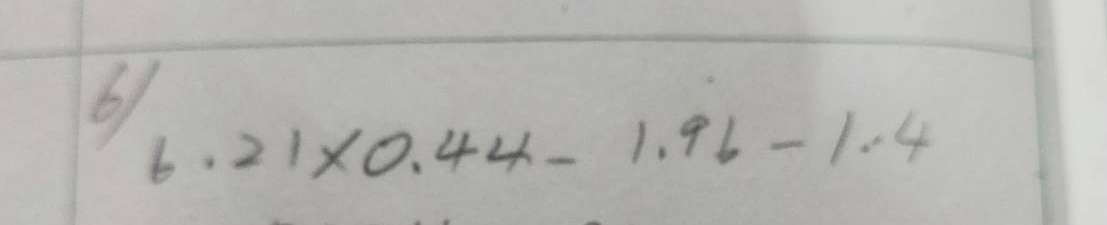 6) 6.21×0.44- 1.96-1.4